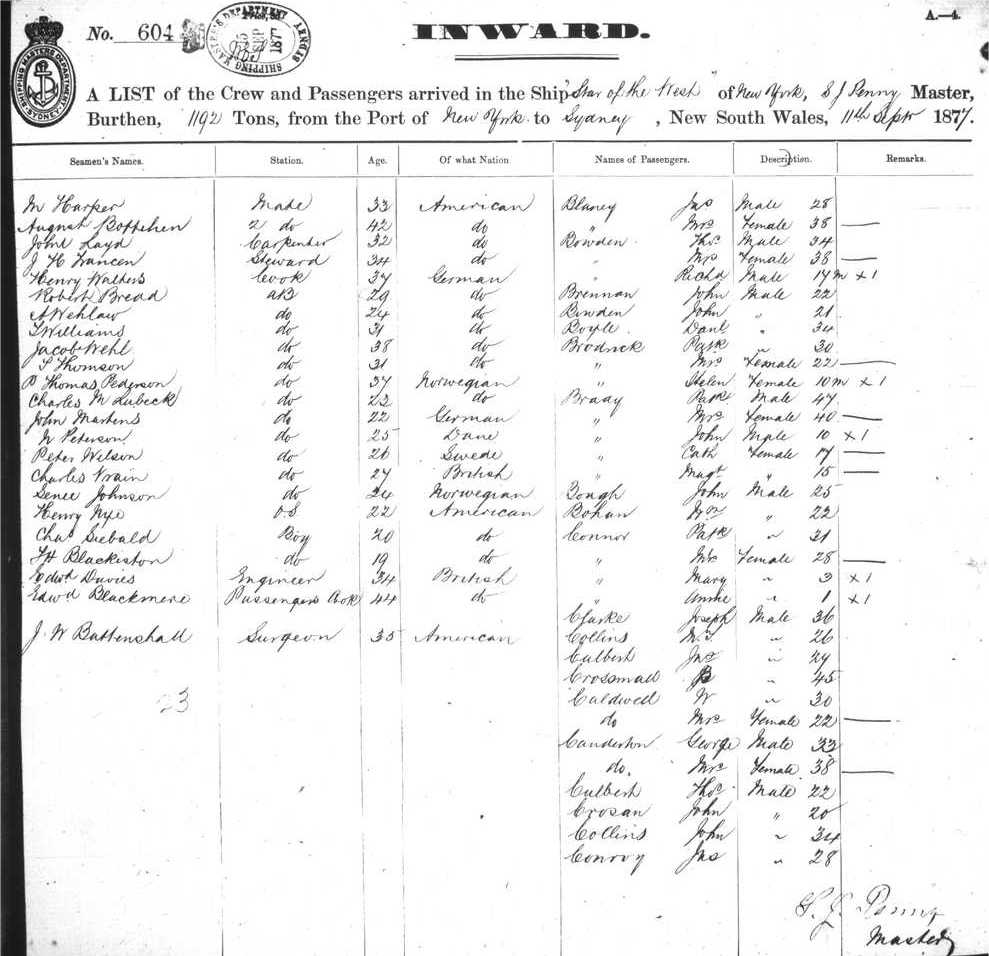 No. 604
SHIPPING MASTER'S DEPARTMENT
SEP
1877
SHIPPING MASTERS DEPARTMENT
SYDNEY
INWARD.
A.—4.
A LIST of the Crew and Passengers arrived in the Ship "Star of the West" of New York, S J Penny Master,
Burthen, 1192 Tons, from the Port of New York to Sydney, New South Wales, 11th Septr 1877.
Seamen's Names. Station. Age. Of what Nation Names of Passengers. Description. Remarks.
M Harper Mate 33 American Blaney Jas Male 28
August Bottchen 2 do 42 do " Mrs Female 38 —
John Layd Carpenter 32 do Bowden Thos Male 34
J H Francen Steward 34 do " Mrs Female 38 —
Henry Walters Cook 37 German " Richd Male 17 m x 1
Robert Bread AB 29 do Brennan John Male 22
A Wehlaw do 24 do Bowden John " 21
T Williams do 31 do Boyle Danl " 34
Jacob Wehl do 38 do Brodrick Patk " 30
T Thomson do 31 do " Mrs Female 22 —
P Thomas Pederson do 37 Norwegian " Helen Female 10 m x 1
Charles M Lubeck do 22 do Brady Patk Male 47
John Martens do 22 German " Mrs Female 40 —
N Peterson do 25 Dane " John Male 10 x 1
Peter Wilson do 26 Swede " Cath Female 17 —
Charles Vrain do 27 British " Magt " 15 —
Senee Johnson do 24 Norwegian Gough John Male 25
Henry Nye O.S 22 American Bohan Wm " 22
Chas Siebald Boy 20 do Connor Patk " 31
F H Blackiston do 19 do " Mrs Female 28 —
Edwd Davies Engineer 34 British " Mary " 3 x 1
Edwd Blackmere Passengers Cook 44 do " Annie " 1 x 1
Clarke Joseph Male 36
J. W Battenshall Surgeon 35 American Collins " 26
Culbert Jas " 29
Crossmall B " 45
23 Caldwell W " 30
do Mrs Female 22 —
Canderton George Male 33
do. Mrs Female 38 —
Culbert Thos Male 22
Crosan John " 20
Collins John " 34
Conroy Jas " 28
S. J. Penny
Master